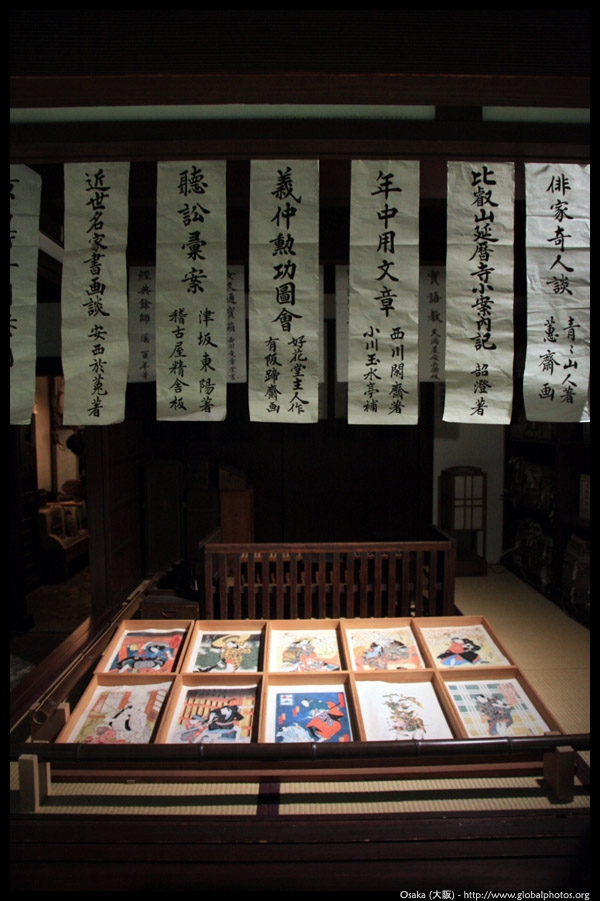 俳家奇人談
青〻山人著
蕙齋画
比叡山延暦寺小案内記 韶澄著
年中用文章
西川閑齋著
小川玉水亭補
義仲勲功圖會
好花堂主人作
有阪蹄齋画
聽訟彙案
津坂東陽著
稽古屋精舎板
近世名家書画談 安西於菟著
實語教
Osaka (大阪) - http://www.globalphotos.org